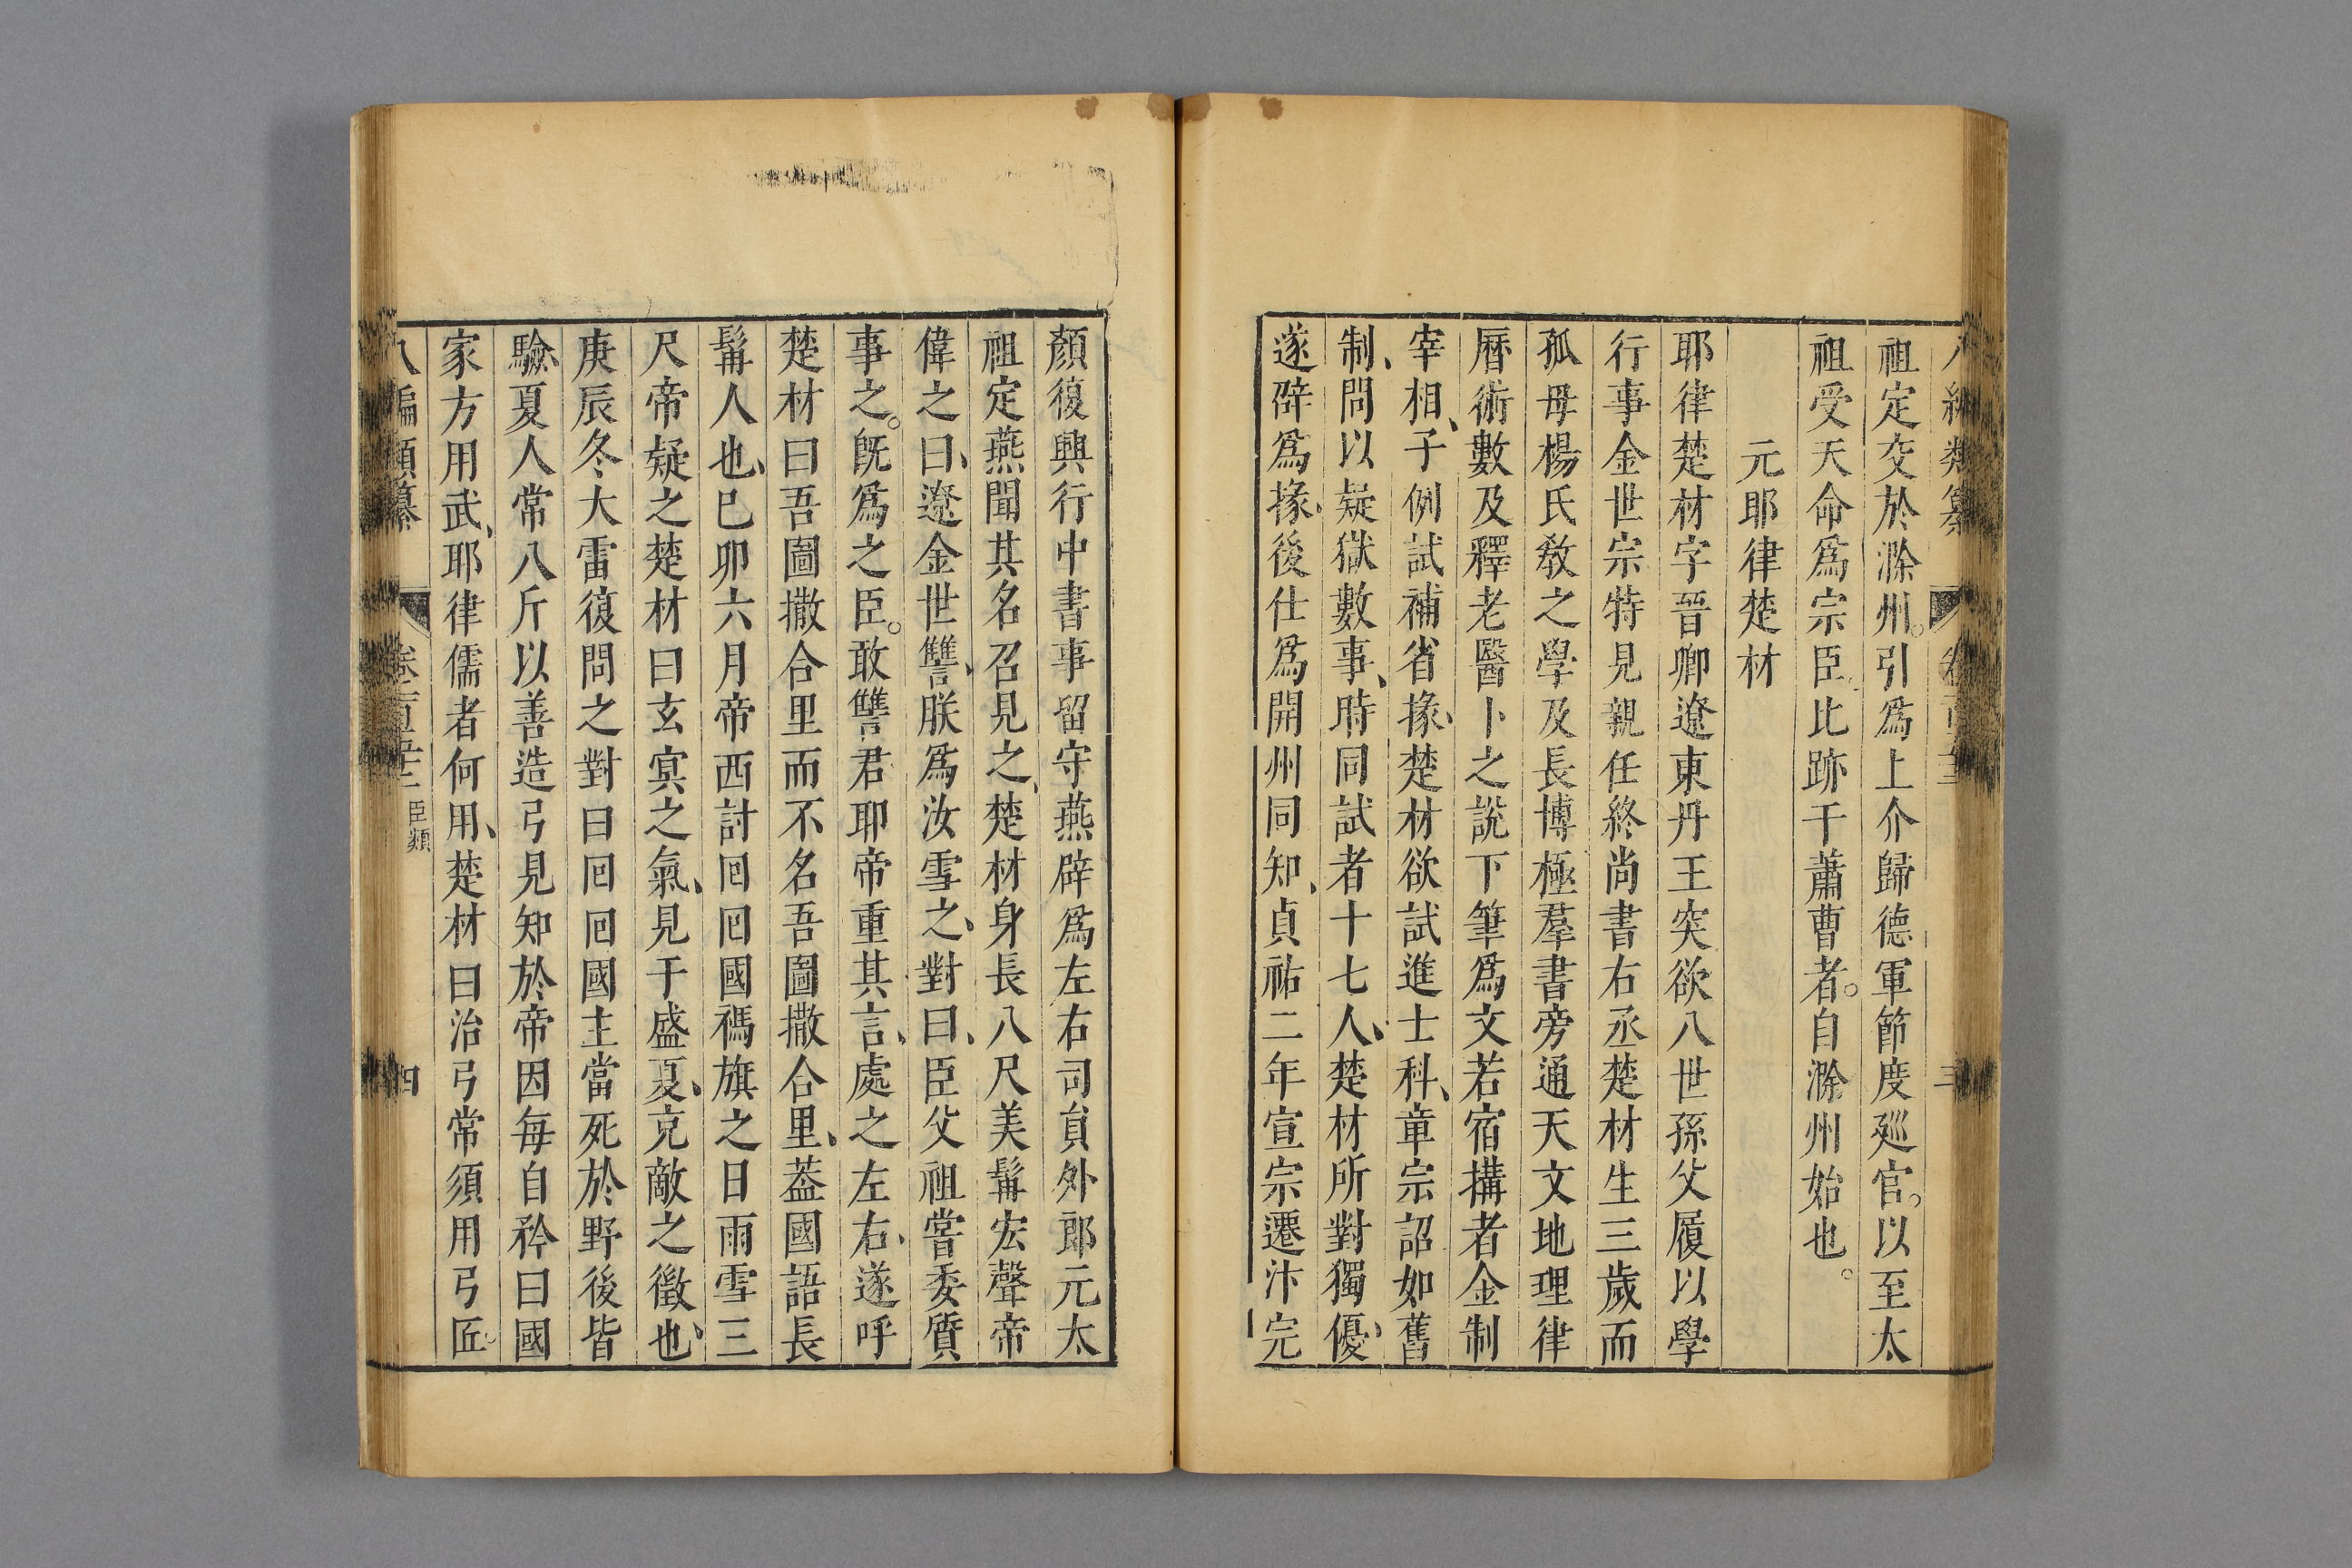 祖定交於滁州。引爲上介歸德軍節度廵官。以至太
祖受天命爲宗臣比跡于蕭曹者。自滁州始也。
元耶律楚材
耶律楚材字晉卿遼東丹王突欲八世孫父履以學
行事金世宗特見親任終尚書右丞楚材生三歲而
孤母楊氏敎之學及長博極羣書旁通天文地理律
曆術數及釋老醫卜之說下筆爲文若宿搆者金制
宰相、子例試補省掾、楚材欲試進士科、章宗詔如舊
制、問以疑獄數事、時同試者十七人、楚材所對獨優、
遂辟爲掾、後仕爲開州同知、貞祐二年宣宗遷汴完
顏復興行中書事留守燕辟爲左右司員外郎元太
祖定燕聞其名召見之、楚材身長八尺美髯宏聲帝
偉之曰、遼金世讐、朕爲汝雪之、對曰、臣父祖嘗委質
事之。旣爲之臣。敢讐君耶帝重其言、處之左右、遂呼
楚材曰吾圖撒合里而不名吾圖撒合里、葢國語長
髯人也、巳卯六月帝西討囘囘國禡旗之日雨雪三
尺帝疑之楚材曰玄冥之氣、見于盛夏、克敵之徵也、
庚辰冬大雷復問之對曰囘囘國主當死於野後皆
驗、夏人常八斤以善造弓見知於帝因每自矜曰國
家方用武、耶律儒者何用、楚材曰治弓常須用弓匠
八編類纂 臣類 四